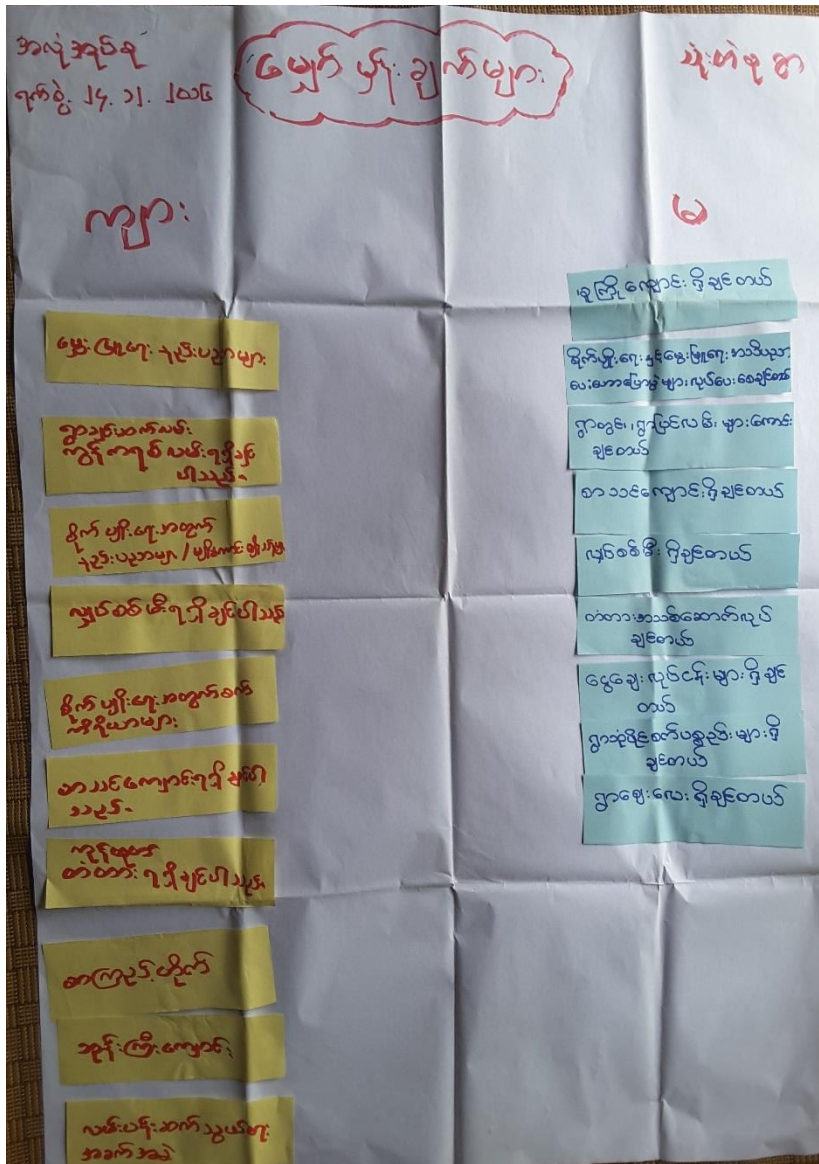 မျှော်မှန်းချက်များ
ရက်စွဲ၊ ၂၄. ၁၂. ၂၀၁၆
ကျား
မွေးမြူရေး နည်းပညာများ
ရွာချင်းဆက်လမ်း
ကွန်ကရစ်လမ်းရရှိချင်
ပါသည်။
စိုက်ပျိုးရေးအတွက်
နည်းပညာများ / မျိုးကောင်းမျိုးသန့်များ
လျှပ်စစ်မီးရရှိချင်ပါသည်
စိုက်ပျိုးရေးအတွက်စက်
ကိရိယာများ
စာသင်ကျောင်းရရှိချင်ပါ
သည်။
တံတားရရှိချင်ပါသည်
စာကြည့်တိုက်
ဘုန်းကြီးကျောင်း
လမ်းပန်းဆက်သွယ်ရေး
အခက်အခဲ
မ
မူကြိုကျောင်းရှိချင်တယ်
စိုက်ပျိုးရေးနှင့်မွေးမြူရေးအသိပညာ
ပေးဟောပြောပွဲများလုပ်ပေးစေချင်တယ်
ရွာတွင်း၊ရွာပြင်လမ်းများကောင်း
ချင်တယ်
စာသင်ကျောင်းရှိချင်တယ်
လျှပ်စစ်မီးရှိချင်တယ်
တံတားအသစ်ဆောက်လုပ်
ချင်တယ်
ငွေချေးလုပ်ငန်းများရှိချင်
တယ်
ရွာသုံးပိုင်ဆိုင်ပစ္စည်းများရှိ
ချင်တယ်
ရွာဆေးပေးရှိချင်တယ်